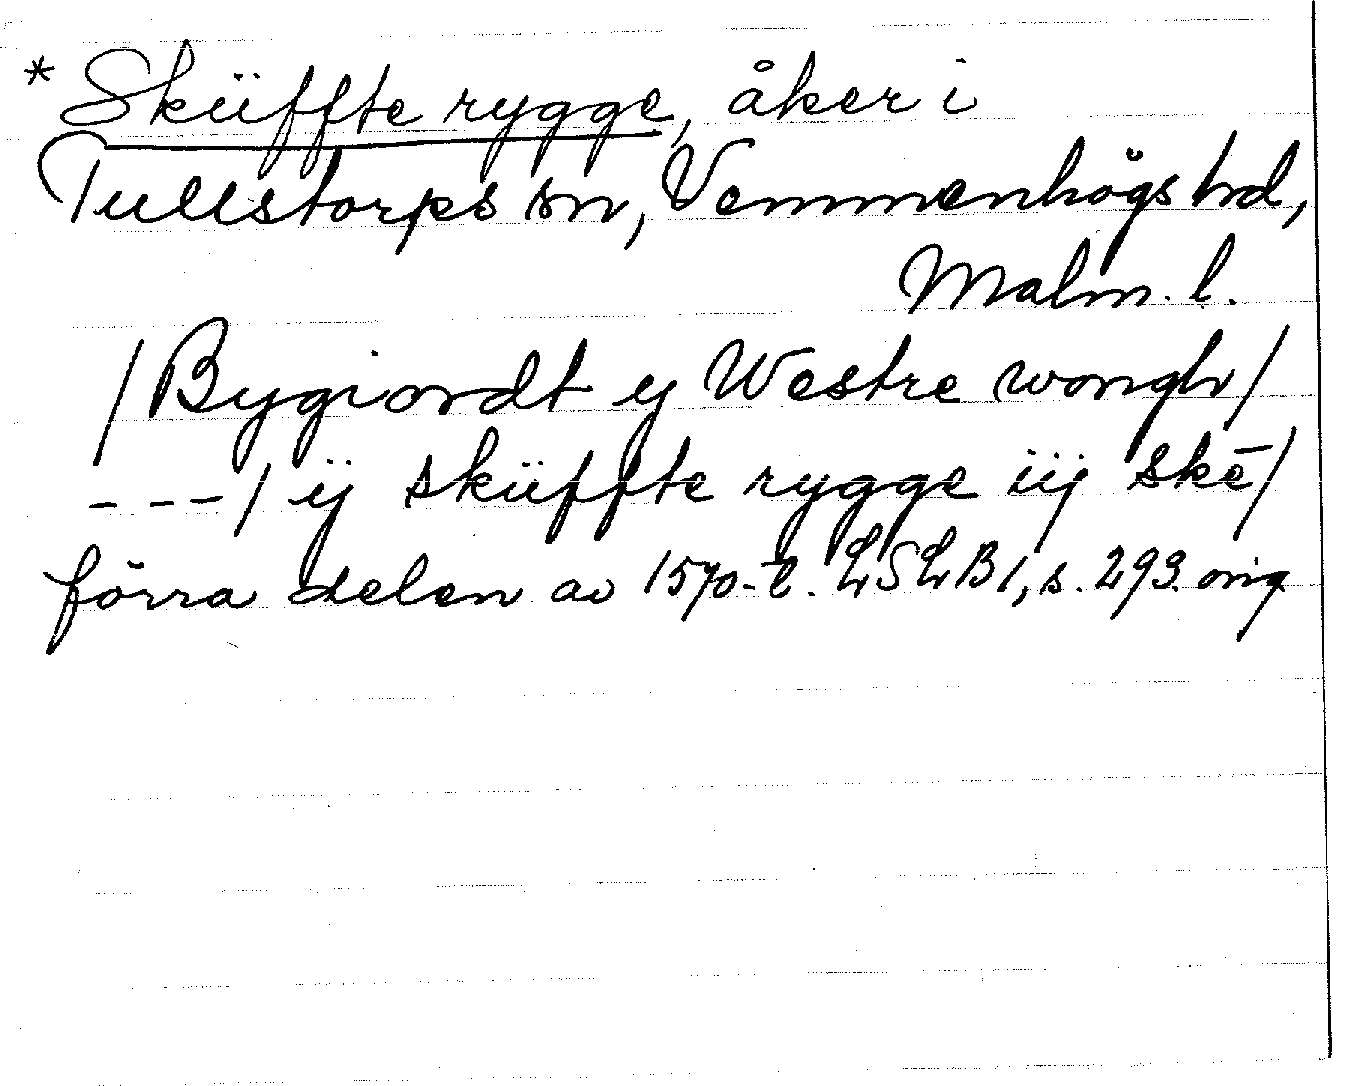 * Sküffte rygge, åker i
Tullstorps sn, Vemmenhögs hd,
Malm. l.
/Bygiordt ij Westre wongh/
---/ ij sküffte rygge iij skē/
förra delen av 1570-t. LSLB1, s. 293. orig.